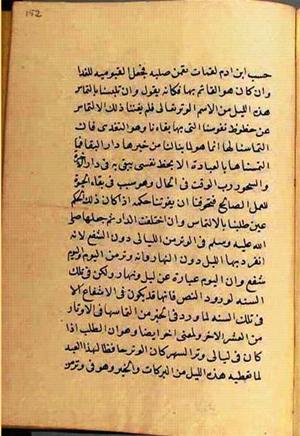 152
حسب ابن ادم لقيمات يقمن صلبه فجعل القيومية للغذا
وان كان هو القائم بها فكانه يقول وان تلبسنا بالتماس
هذه الليل من الاسم الوتر تعالى فلم يفتنا ذلك الالتماس
عن حظوظ نفوسنا التى بها بقاءنا وهو التغذى فان
التماسنا لها انما هو لما ينالنا من خيرها دار البقا فما
التمسناها بالعبادة الا بحظ نفسى يبقى به فى دار
والسحور رب الوقت فى الحال وهو سبب فى بقاء الحيوة
للعمل الصالح فتخوفنا ان يفوتنا حكمه اذ كان ذلك الحكم
عين طلبنا بالالتماس وان اختلفت الدار ثم جعلها صلى
الله عليه وسلم فى الوتر من الليالى دون الشفع لانه
انفرد بها الليل دون النهار فانه وتر من اليوم واليوم
شفع وان اليوم عبارة عن ليل ونهار ولكن فى تلك
السنه لورود النص فانها قد يكون فى الاشفاع الا
فى تلك السنه لما ورد فى الخبر من التماسها فى الاوتار
من العشر الاخر ولمعنى اخر ايضا وهو ان الطلب اذا
كان فى ليالى وتر السهر كان الوتر حافظا لهذا العبد
لما تعطيه هذه الليل من البركات والخير وهو فى وتر من